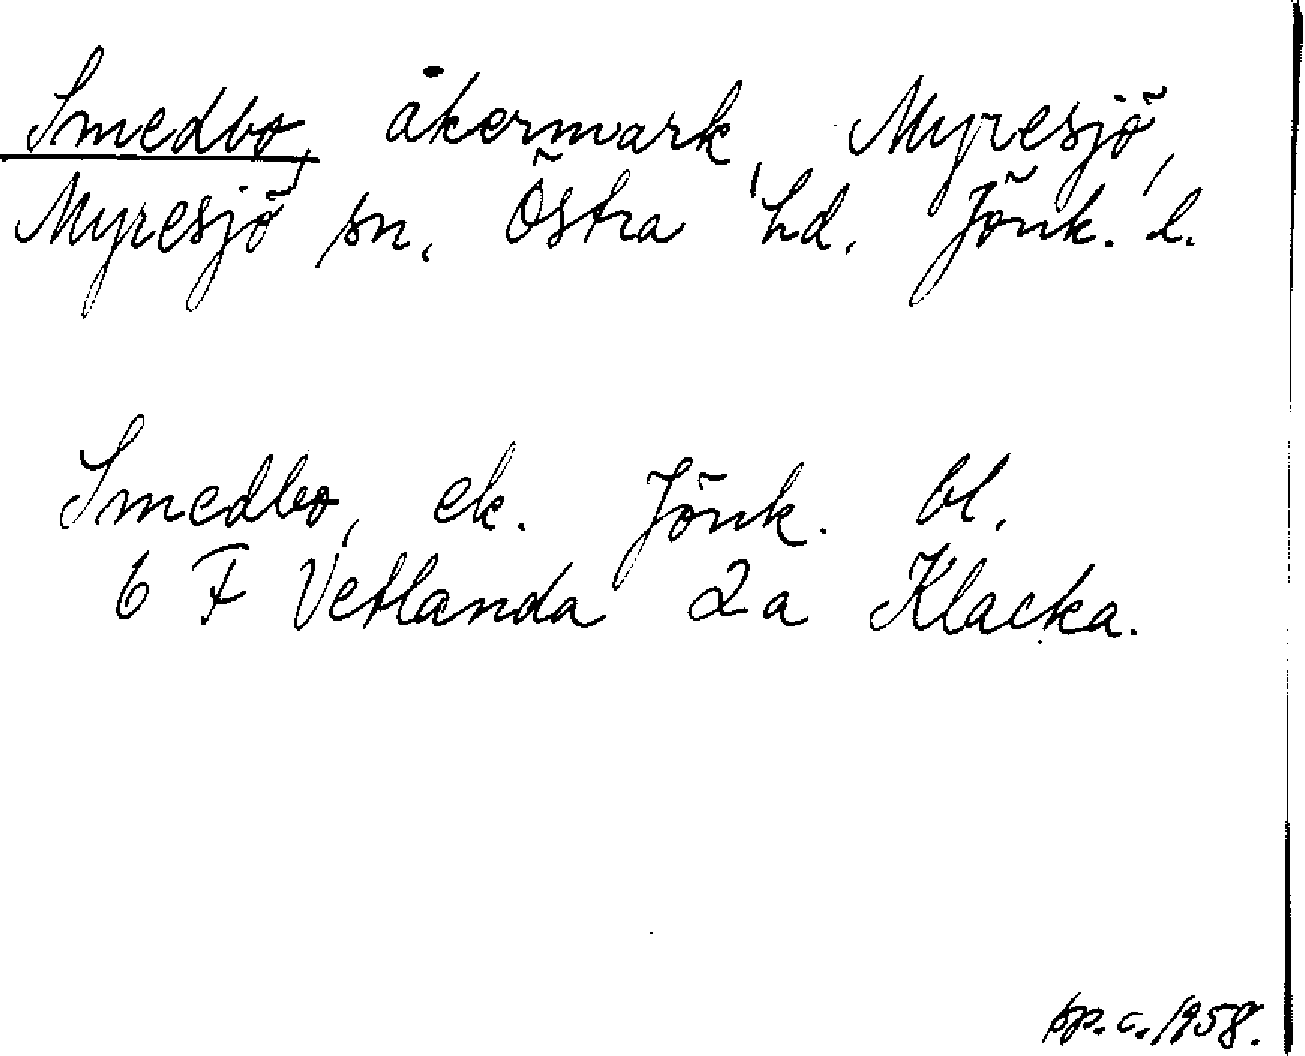 Smedbo, åkermark, Myresjö,
Myresjö sn. Östra hd. Jönk. l.
Smedbo, ek. Jönk. bl.
6 F Vetlanda 2a Klacka.
pp.c.1958.